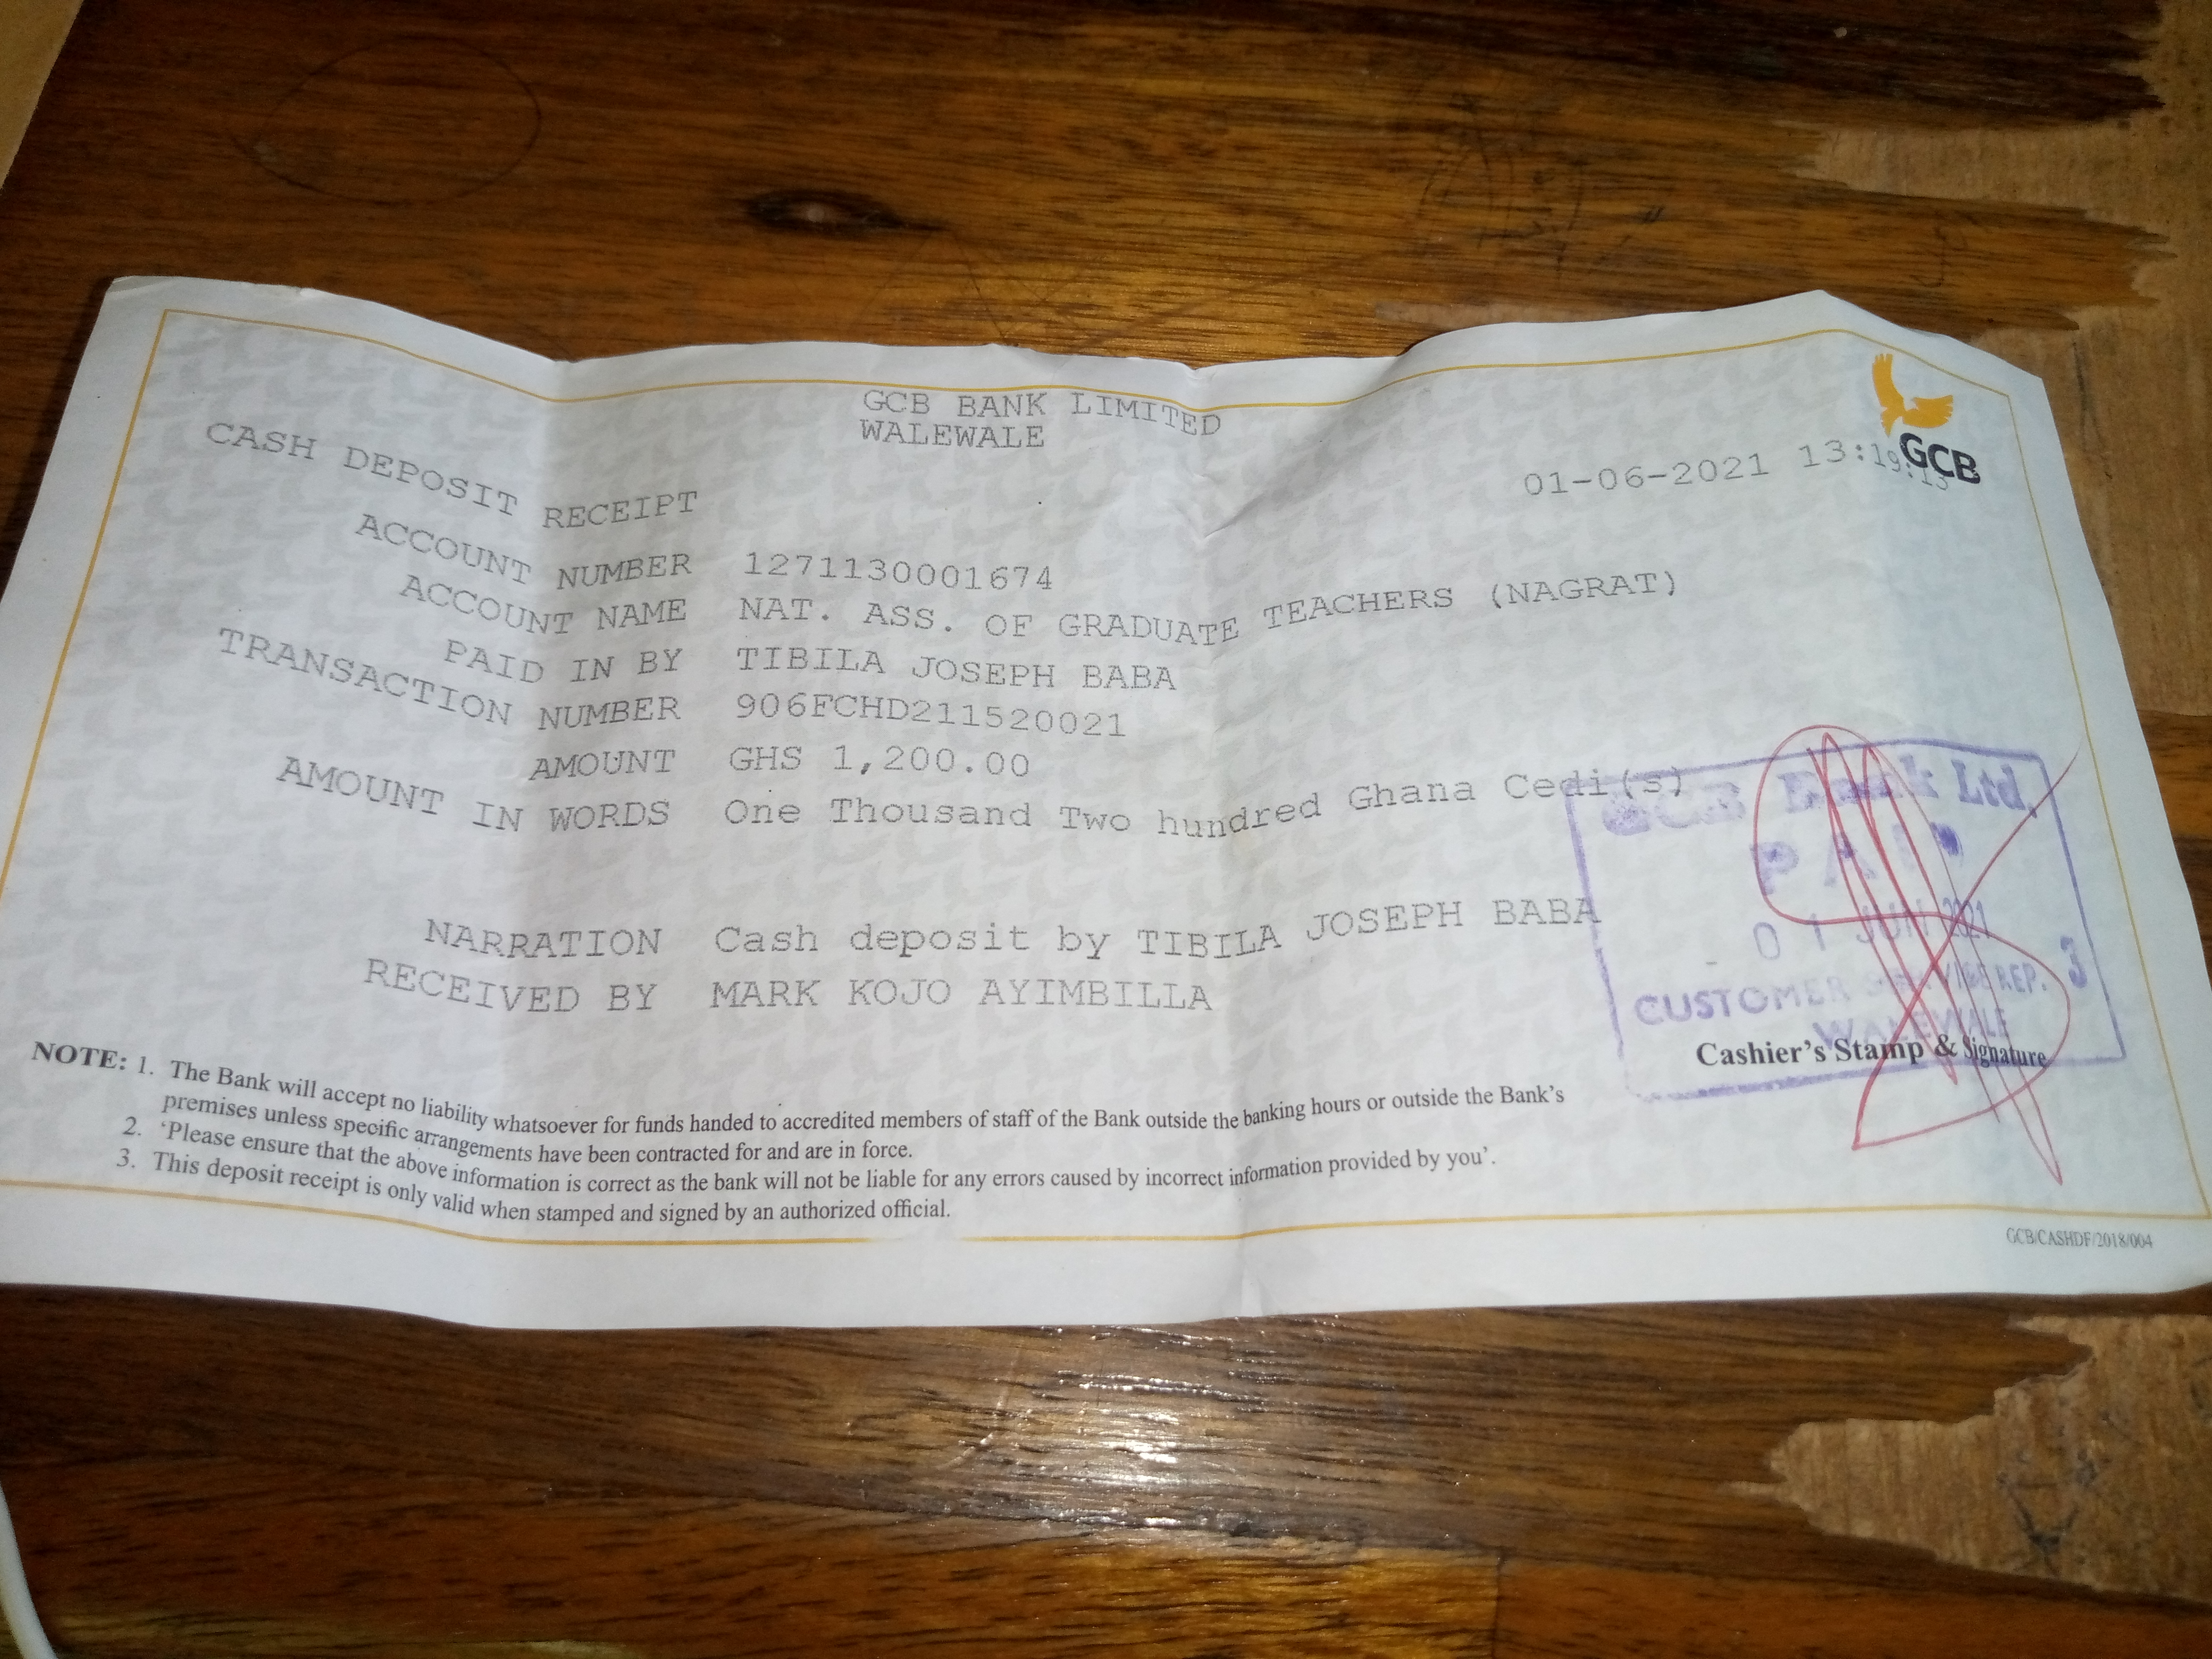 GCB BANK LIMITED
WALEWALE
GCB
CASH DEPOSIT RECEIPT
01-06-2021 13:19:13
ACCOUNT NUMBER 1271130001674
ACCOUNT NAME NAT. ASS. OF GRADUATE TEACHERS (NAGRAT)
PAID IN BY TIBILA JOSEPH BABA
TRANSACTION NUMBER 906FCHD211520021
AMOUNT GHS 1,200.00
AMOUNT IN WORDS One Thousand Two hundred Ghana Cedi(s)
NARRATION Cash deposit by TIBILA JOSEPH BABA
RECEIVED BY MARK KOJO AYIMBILLA
GCB Bank Ltd.
PAID
- 01 JUN 2021
CUSTOMER SERVICE REP. 3
WALEWALE
Cashier's Stamp & Signature
NOTE: 1. The Bank will accept no liability whatsoever for funds handed to accredited members of staff of the Bank outside the banking hours or outside the Bank's
premises unless specific arrangements have been contracted for and are in force.
2. 'Please ensure that the above information is correct as the bank will not be liable for any errors caused by incorrect information provided by you'.
3. This deposit receipt is only valid when stamped and signed by an authorized official.
GCB/CASHDF/2018/004